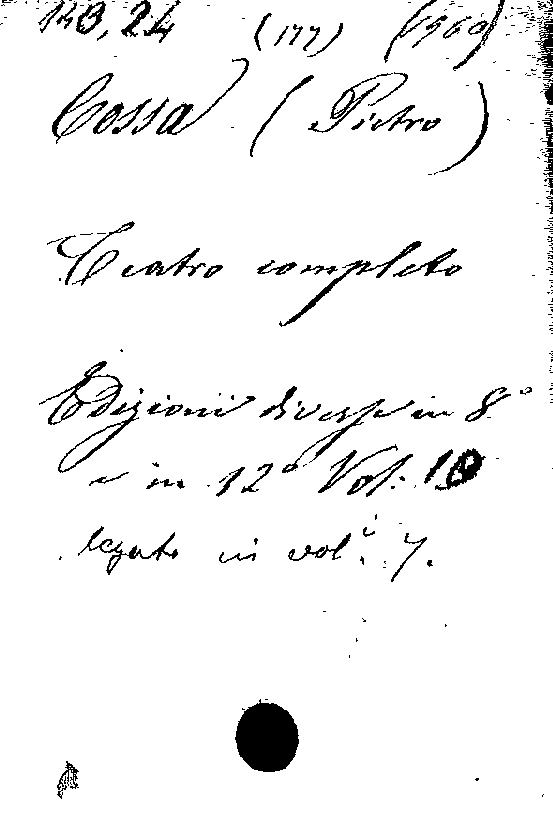 (177) (1960)
Cossa (Pietro)
Teatro completo
Edizioni diverse in 8°
e in 12° Vol: 10
legato in vol.i 7.